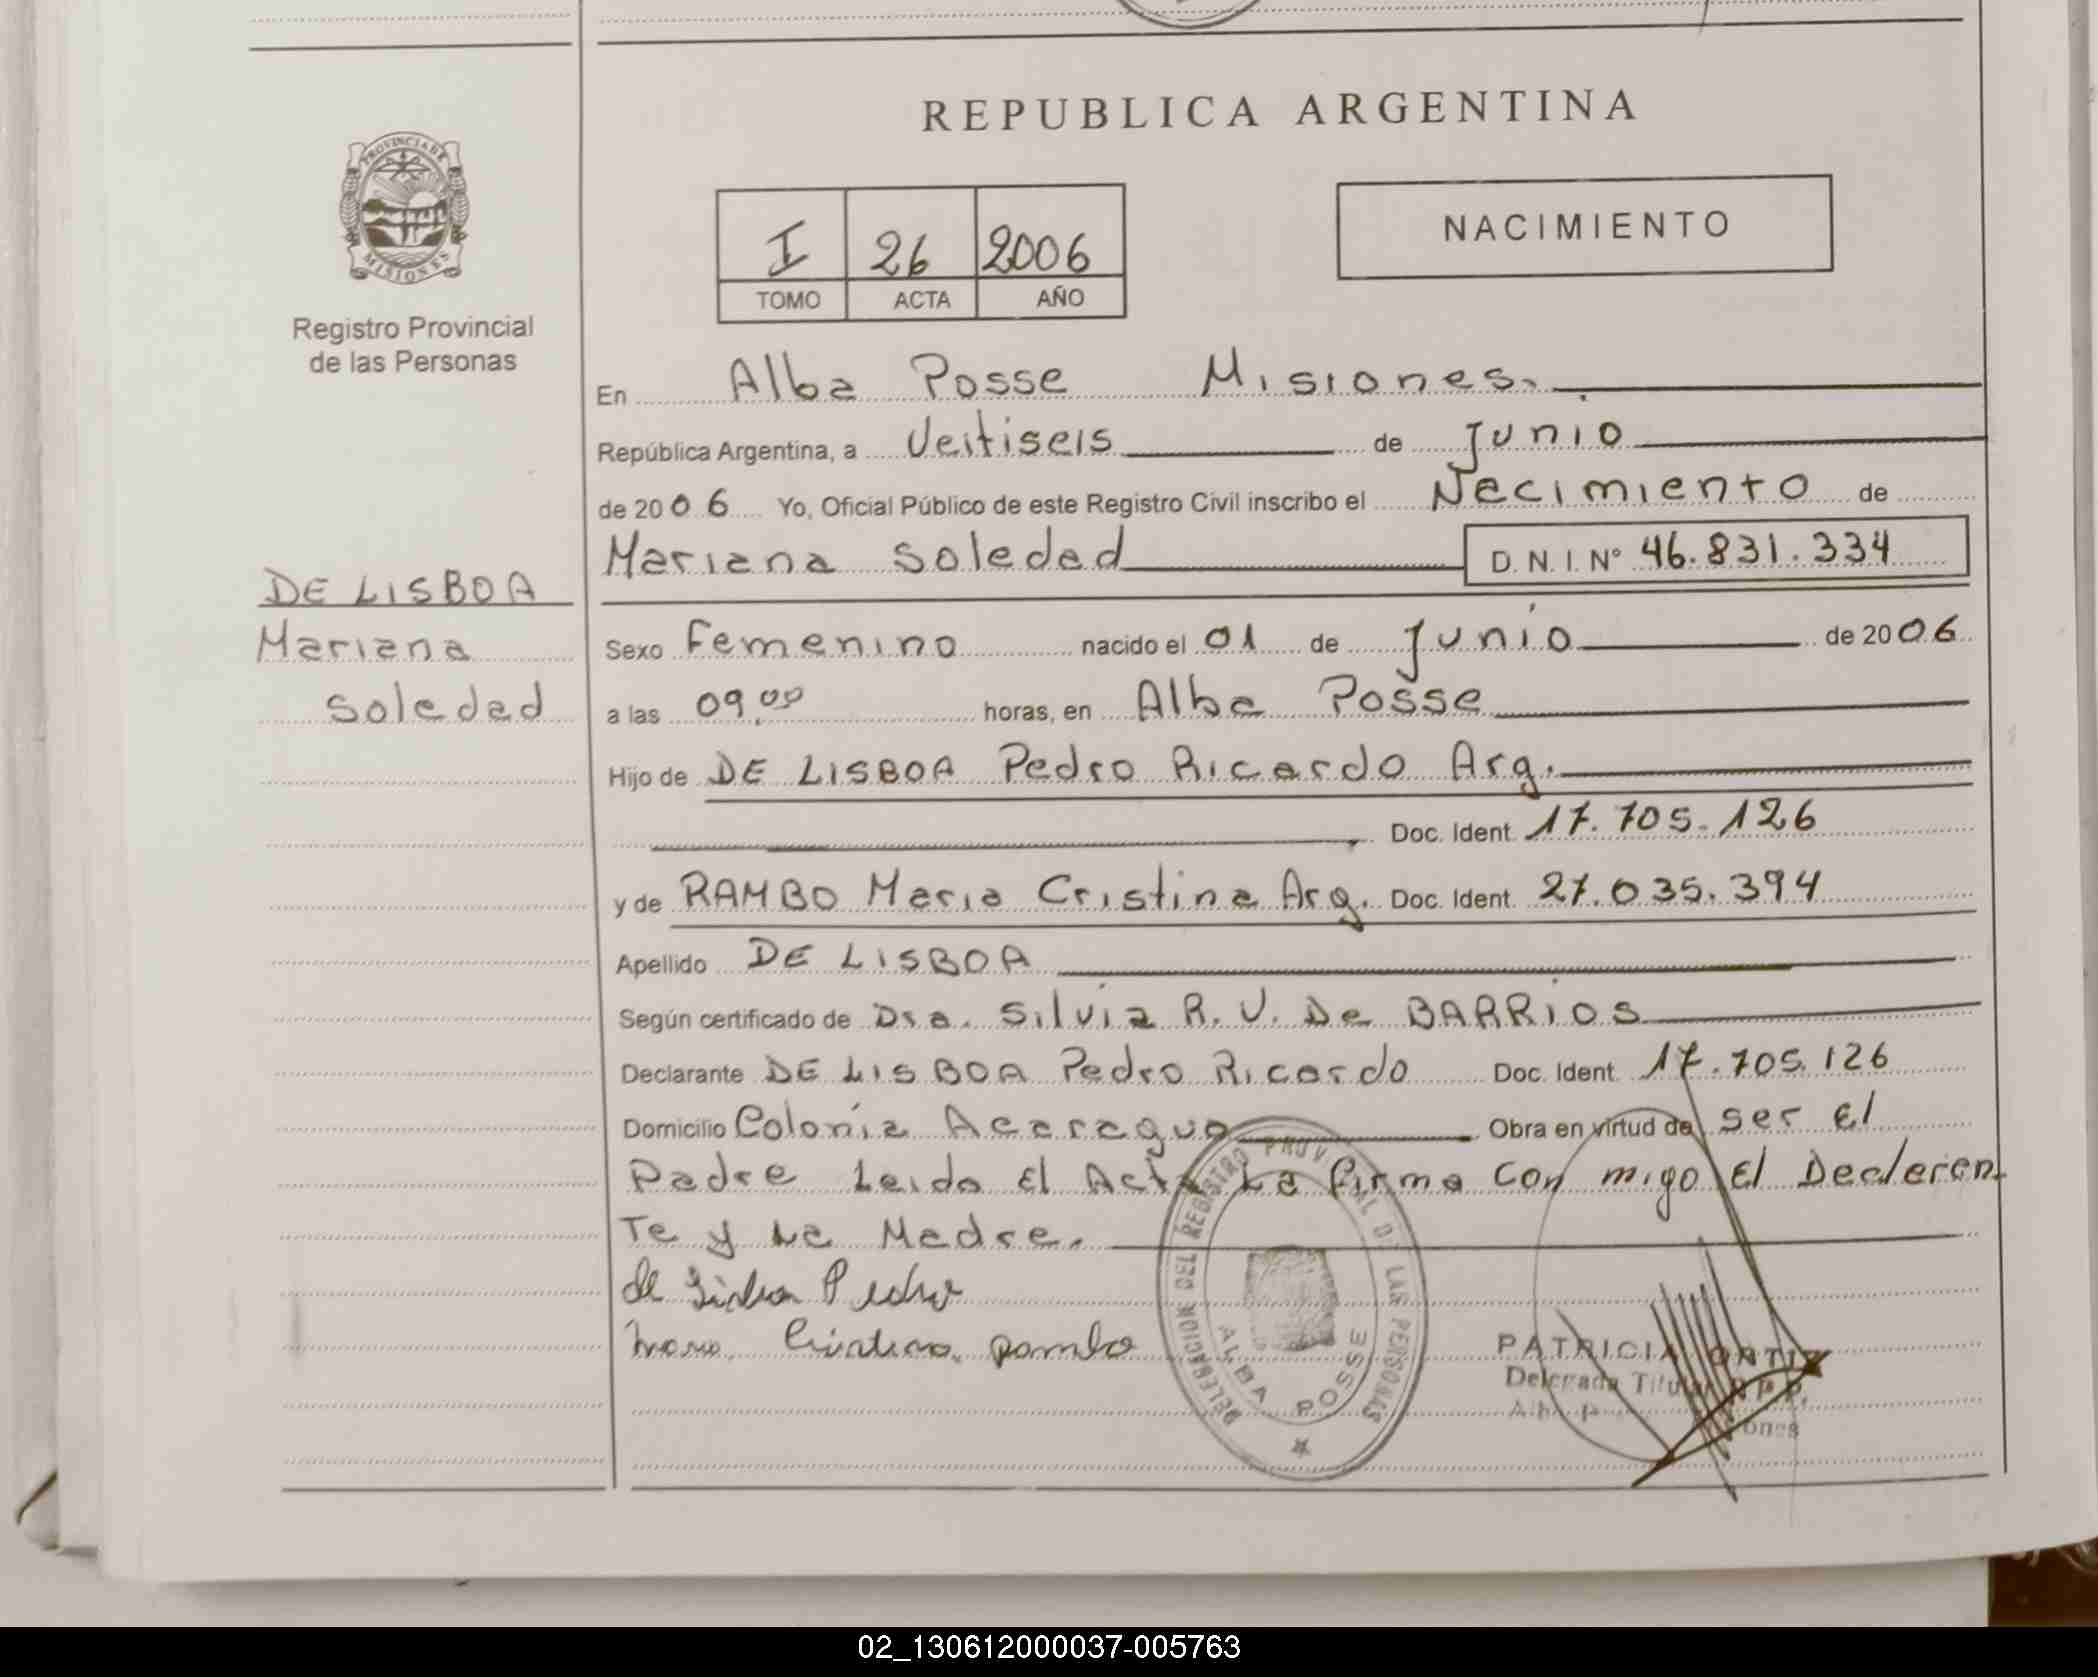 REPUBLICA ARGENTINA
PROVINCIA DE MISIONES
Registro Provincial
de las Personas
I 26 2006
TOMO ACTA AÑO
NACIMIENTO
En Alba Posse Misiones.
República Argentina, a Veitiseis de Junio
de 2006 Yo, Oficial Público de este Registro Civil inscribo el Nacimiento de
Mariana Soledad D.N.I. Nº 46.831.334
DE LISBOA
Mariana
Soledad
Sexo Femenino nacido el 01 de Junio de 2006
a las 09,00 horas, en Alba Posse
Hijo de DE LISBOA Pedro Ricardo Arg.
Doc. Ident. 17.705.126
y de RAMBO Maria Cristina Arg. Doc. Ident. 27.035.394
Apellido DE LISBOA
Según certificado de Dra. Silvia R. V. De BARRIOS
Declarante DE LISBOA Pedro Ricardo Doc. Ident. 17.705.126
Domicilio Colonia Acaragua Obra en virtud de ser El
Padre Leida El Acta La firma Con migo El Declaran
Te y La Madre.
de Lisboa Pedro
Cristina Rambo
DELEGACION DEL REGISTRO PROVINCIAL DE LAS PERSONAS
ALBA POSSE
PATRICIA ORTIZ
Delegada Titular R.P.P.
02_130612000037-005763